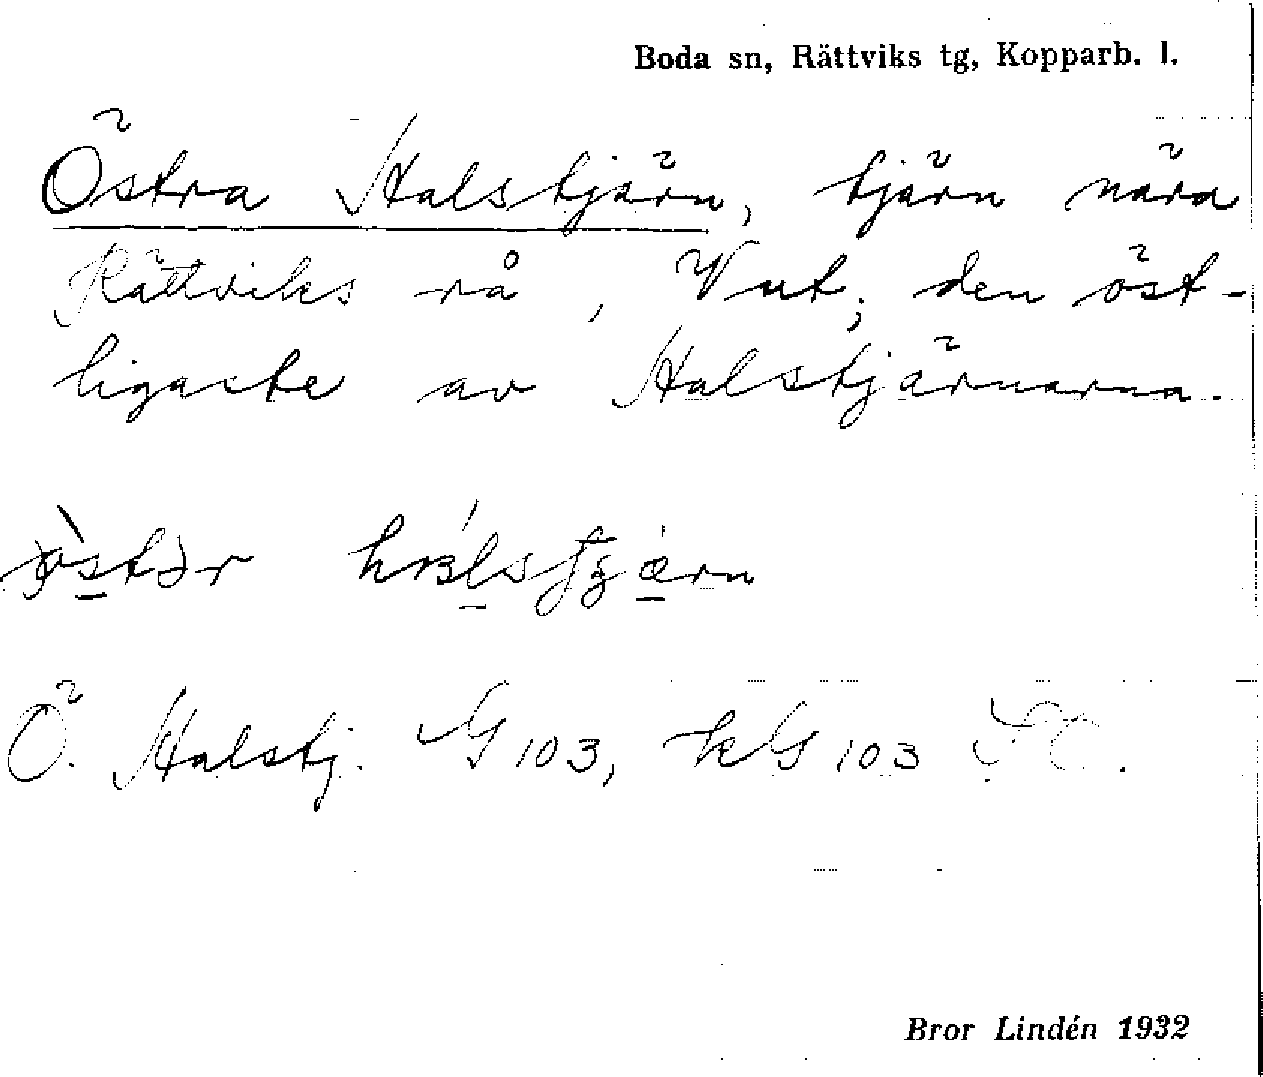 Boda sn, Rättviks tg, Kopparb. l.
Östra Halstjärn, tjärn nära
Rättviks rå, Vut; den öst-
ligaste av Halstjärnarna.
Ö. Halstj. G 103, kG 103
Bror Lindén 1932